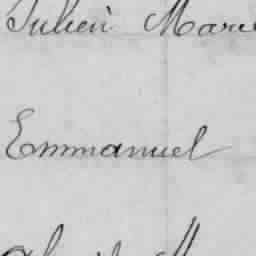 Julien Marie
Emmanuel